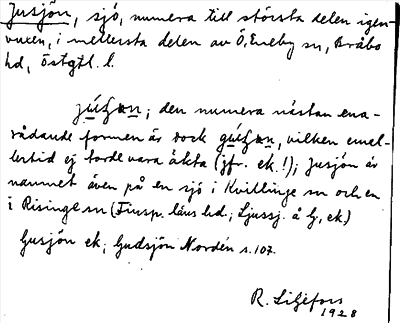 Jusjön, sjö, numera till största delen igen-
vuxen, i mellersta delen av Ö. Eneby sn, Bråbo
hd, Östgtl. l.
den numera nästan ena-
rådande formen är dock vilken emel-
lertid ej torde vara äkta (jfr. ek.!); Jusjön är
namnet även på en sjö i Kvillinge sn och en
i Risinge sn (Finsp. läns hd.; Ljussj. å G, ek.)
Gusjön ek; Gudsjön Nordén s. 107.
R. Liljefors
1928